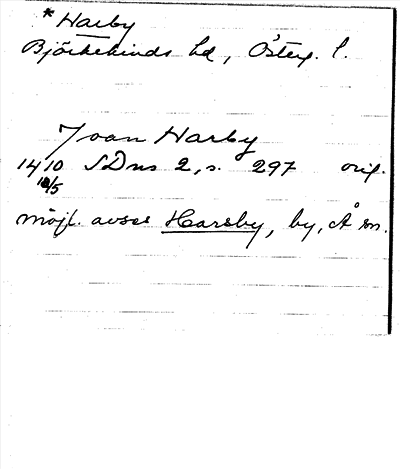 * Harby
Björkekinds hd, Österg. l.
Joan Harby
1410 SDns 2, s. 297 orig.
12/5
möjl. avser Harsby, by, Å sn.